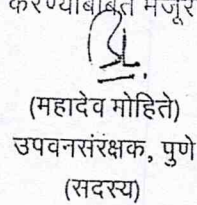 करण्याबाबत मंजूर
(महादेव मोहिते)
उपवनसंरक्षक, पुणे
(सदस्य)